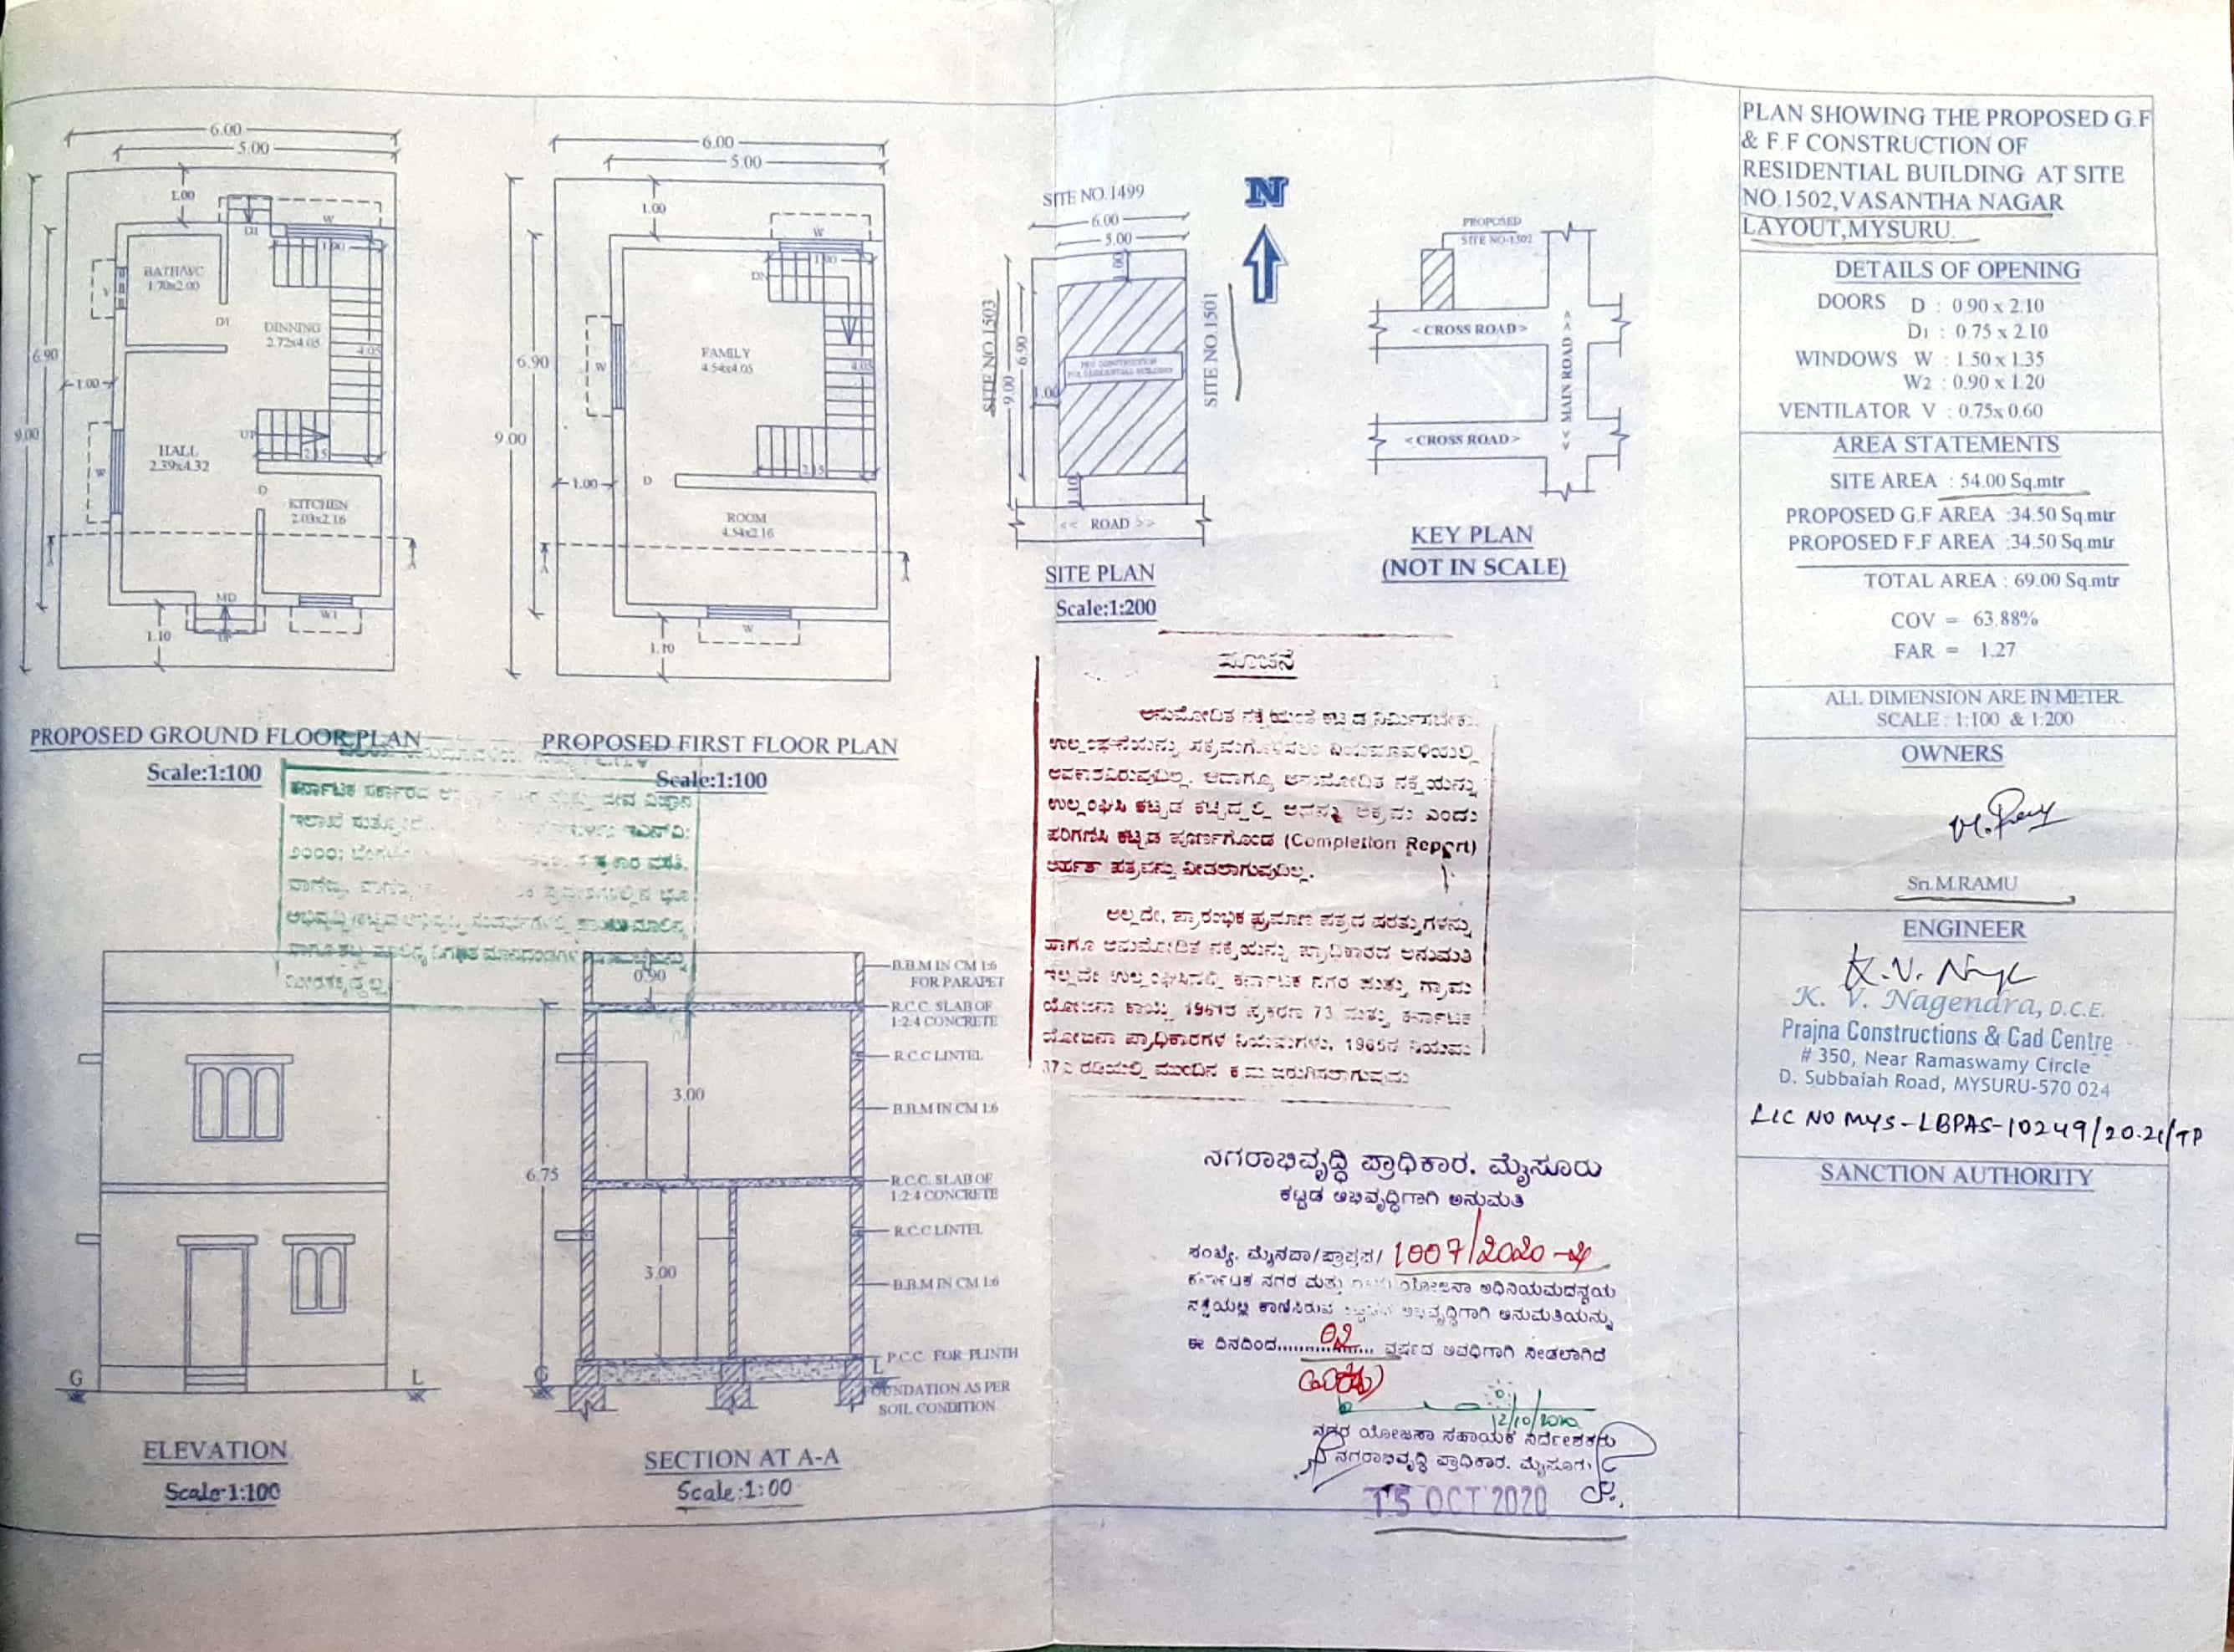 6.00
5.00
1.00
W
D1
1.90
BATH/WC
1.70x2.00
V
D1
DINNING
2.72x4.05
4.05
6.90
1.00
9.00
UP
2.15
HALL
2.39x4.32
W
D
KITCHEN
2.03x2.16
A
A
MD
UP
W1
1.10
PROPOSED GROUND FLOOR PLAN
Scale:1:100
6.00
5.00
1.00
W
DN
1.90
FAMILY
4.54x4.05
4.05
W
6.90
9.00
1.00
D
2.15
ROOM
4.54x2.16
A
A
W
1.10
PROPOSED FIRST FLOOR PLAN
Scale:1:100
SITE NO.1499
6.00
5.00
1.00
SITE NO.1503
9.00
6.90
1.00
SITE NO.1501
1.10
<< ROAD >>
SITE PLAN
Scale:1:200
N
PROPOSED
SITE NO-1502
< CROSS ROAD >
<< MAIN ROAD >>
< CROSS ROAD >
KEY PLAN
(NOT IN SCALE)
ಸೂಚನೆ
ಅನುಮೋದಿತ ನಕ್ಷೆಯಂತೆ ಕಟ್ಟಡ ನಿರ್ಮಿಸಬೇಕು.
ಉಲ್ಲಂಘನೆಯನ್ನು ಸಕ್ರಮಗೊಳಿಸಲು ನಿಯಮಾವಳಿಯಲ್ಲಿ
ಅವಕಾಶವಿರುವುದಿಲ್ಲ. ಆದಾಗ್ಯೂ ಅನುಮೋದಿತ ನಕ್ಷೆಯನ್ನು
ಉಲ್ಲಂಘಿಸಿ ಕಟ್ಟಡ ಕಟ್ಟಿದ್ದಲ್ಲಿ ಅದನ್ನು ಅಕ್ರಮ ಎಂದು
ಪರಿಗಣಿಸಿ ಕಟ್ಟಡ ಪೂರ್ಣಗೊಂಡ (Completion Report)
ಅರ್ಹತಾ ಪತ್ರವನ್ನು ನೀಡಲಾಗುವುದಿಲ್ಲ.
ಅಲ್ಲದೇ, ಪ್ರಾರಂಭಿಕ ಪ್ರಮಾಣ ಪತ್ರದ ಷರತ್ತುಗಳನ್ನು
ಹಾಗೂ ಅನುಮೋದಿತ ನಕ್ಷೆಯನ್ನು ಪ್ರಾಧಿಕಾರದ ಅನುಮತಿ
ಇಲ್ಲದೇ ಉಲ್ಲಂಘಿಸಿದಲ್ಲಿ ಕರ್ನಾಟಕ ನಗರ ಮತ್ತು ಗ್ರಾಮ
ಯೋಜನಾ ಕಾಯ್ದೆ 1961ರ ಪ್ರಕರಣ 73 ಮತ್ತು ಕರ್ನಾಟಕ
ಯೋಜನಾ ಪ್ರಾಧಿಕಾರಗಳ ನಿಯಮಗಳು, 1965ರ ನಿಯಮ
37ಎ ರಡಿಯಲ್ಲಿ ಮುಂದಿನ ಕ್ರಮ ಜರುಗಿಸಲಾಗುವುದು
ಕರ್ನಾಟಕ ಸರ್ಕಾರದ
ಇಲಾಖೆ
ಅಭಿವೃದ್ಧಿ/ಕಟ್ಟಡ
G
L
ELEVATION
Scale 1:100
0.90
3.00
6.75
3.00
B.B.M IN CM 1:6
FOR PARAPET
R.C.C. SLAB OF
1:2:4 CONCRETE
R.C.C LINTEL
B.B.M IN CM 1:6
R.C.C. SLAB OF
1:2:4 CONCRETE
R.C.C LINTEL
B.B.M IN CM 1:6
P.C.C. FOR PLINTH
G
L
FOUNDATION AS PER
SOIL CONDITION
SECTION AT A-A
Scale:1:00
ನಗರಾಭಿವೃದ್ಧಿ ಪ್ರಾಧಿಕಾರ. ಮೈಸೂರು
ಕಟ್ಟಡ ಅಭಿವೃದ್ಧಿಗಾಗಿ ಅನುಮತಿ
ಸಂಖ್ಯೆ. ಮೈನಪ್ರಾ/ಪ್ರಾಪ್ರಪ/ 1007/2020-21
ಕರ್ನಾಟಕ ನಗರ ಮತ್ತು ಯೋಜನಾ ಅಧಿನಿಯಮದನ್ವಯ
ನಕ್ಷೆಯಲ್ಲಿ ಕಾಣಿಸಿರುವ ಅಭಿವೃದ್ಧಿಗಾಗಿ ಅನುಮತಿಯನ್ನು
ಈ ದಿನದಿಂದ......02...... ವರ್ಷದ ಅವಧಿಗಾಗಿ ನೀಡಲಾಗಿದೆ
12/10/2020
ನಗರ ಯೋಜನಾ ಸಹಾಯಕ ನಿರ್ದೇಶಕರು
ನಗರಾಭಿವೃದ್ಧಿ ಪ್ರಾಧಿಕಾರ. ಮೈಸೂರು
15 OCT 2020
PLAN SHOWING THE PROPOSED G.F
& F.F CONSTRUCTION OF
RESIDENTIAL BUILDING AT SITE
NO.1502,VASANTHA NAGAR
LAYOUT,MYSURU.
DETAILS OF OPENING
DOORS D : 0.90 x 2.10
D1 : 0.75 x 2.10
WINDOWS W : 1.50 x 1.35
W2 : 0.90 x 1.20
VENTILATOR V : 0.75x 0.60
AREA STATEMENTS
SITE AREA : 54.00 Sq.mtr
PROPOSED G.F AREA :34.50 Sq.mtr
PROPOSED F.F AREA :34.50 Sq.mtr
TOTAL AREA : 69.00 Sq.mtr
COV = 63.88%
FAR = 1.27
ALL DIMENSION ARE IN METER
SCALE : 1:100 & 1:200
OWNERS
Sri.M.RAMU
ENGINEER
K. V. Nagendra, D.C.E.
Prajna Constructions & Cad Centre
# 350, Near Ramaswamy Circle
D. Subbaiah Road, MYSURU-570 024
LIC NO MYS-LBPAS-10249/20.21/TP
SANCTION AUTHORITY